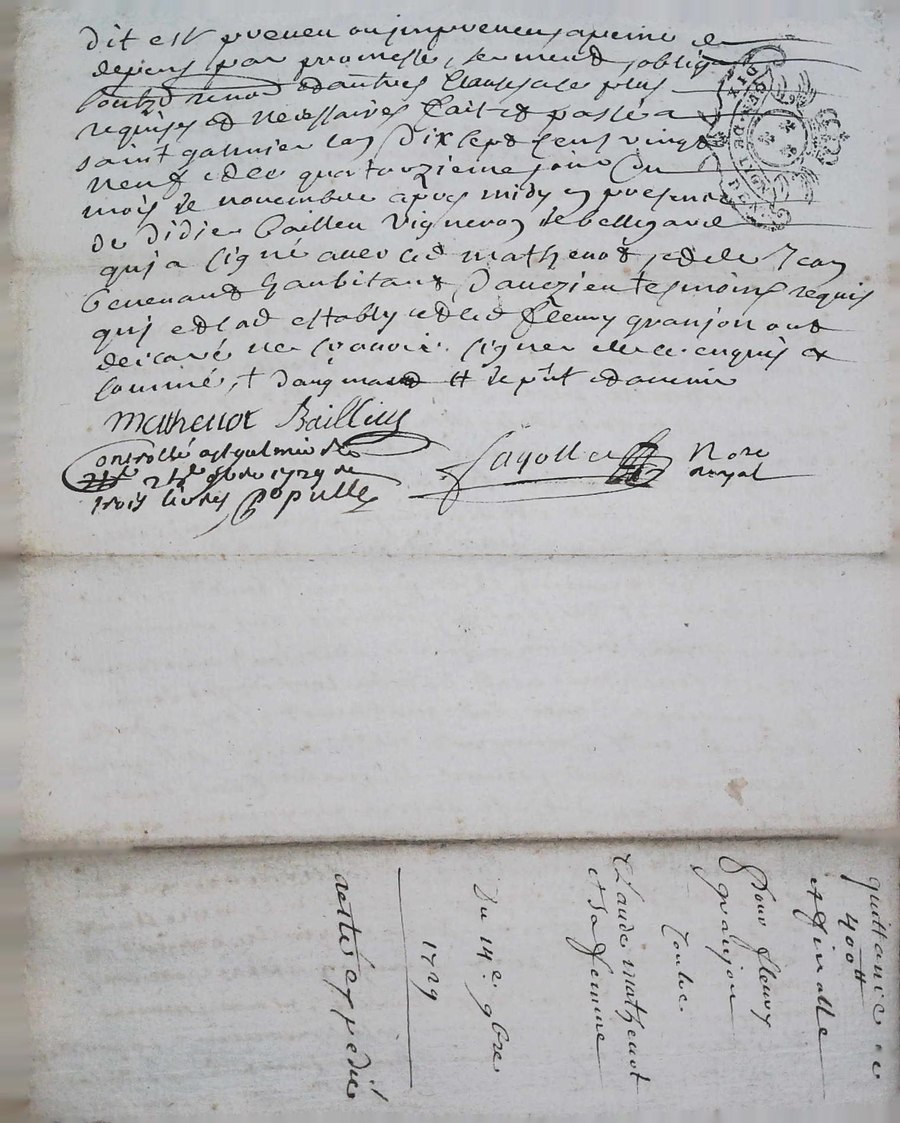 dit est prevenu ou imprevenu a peine de
depens par promesse, serment, oblig
soubzd renon et autres clauses les plus
requises et necessaires fait et passé a
saint galmier lan dix sept cens vingt
neuf et le quatorzieme jour du
mois de novembre apres midy en presence
de didier Bailleu vigneron de bellegarde
qui a signé avec led mathevot, et de Jean
benenant habitant d'auezieu tesmoins requis
qui et lad establye et led fleury granjon ont
declaré ne sçavoir signer de ce enquis et
sommé, +
Mathevot Baillieu
Controllé a st galmier le
24e 9bre 1729 re
trois livres
Nore
royal
quittance de
400tt
et finalle
Pour fleury
granjon
Contre
Claude mathevot
et sa femme
Du 14e 9bre
1729
acte expedié